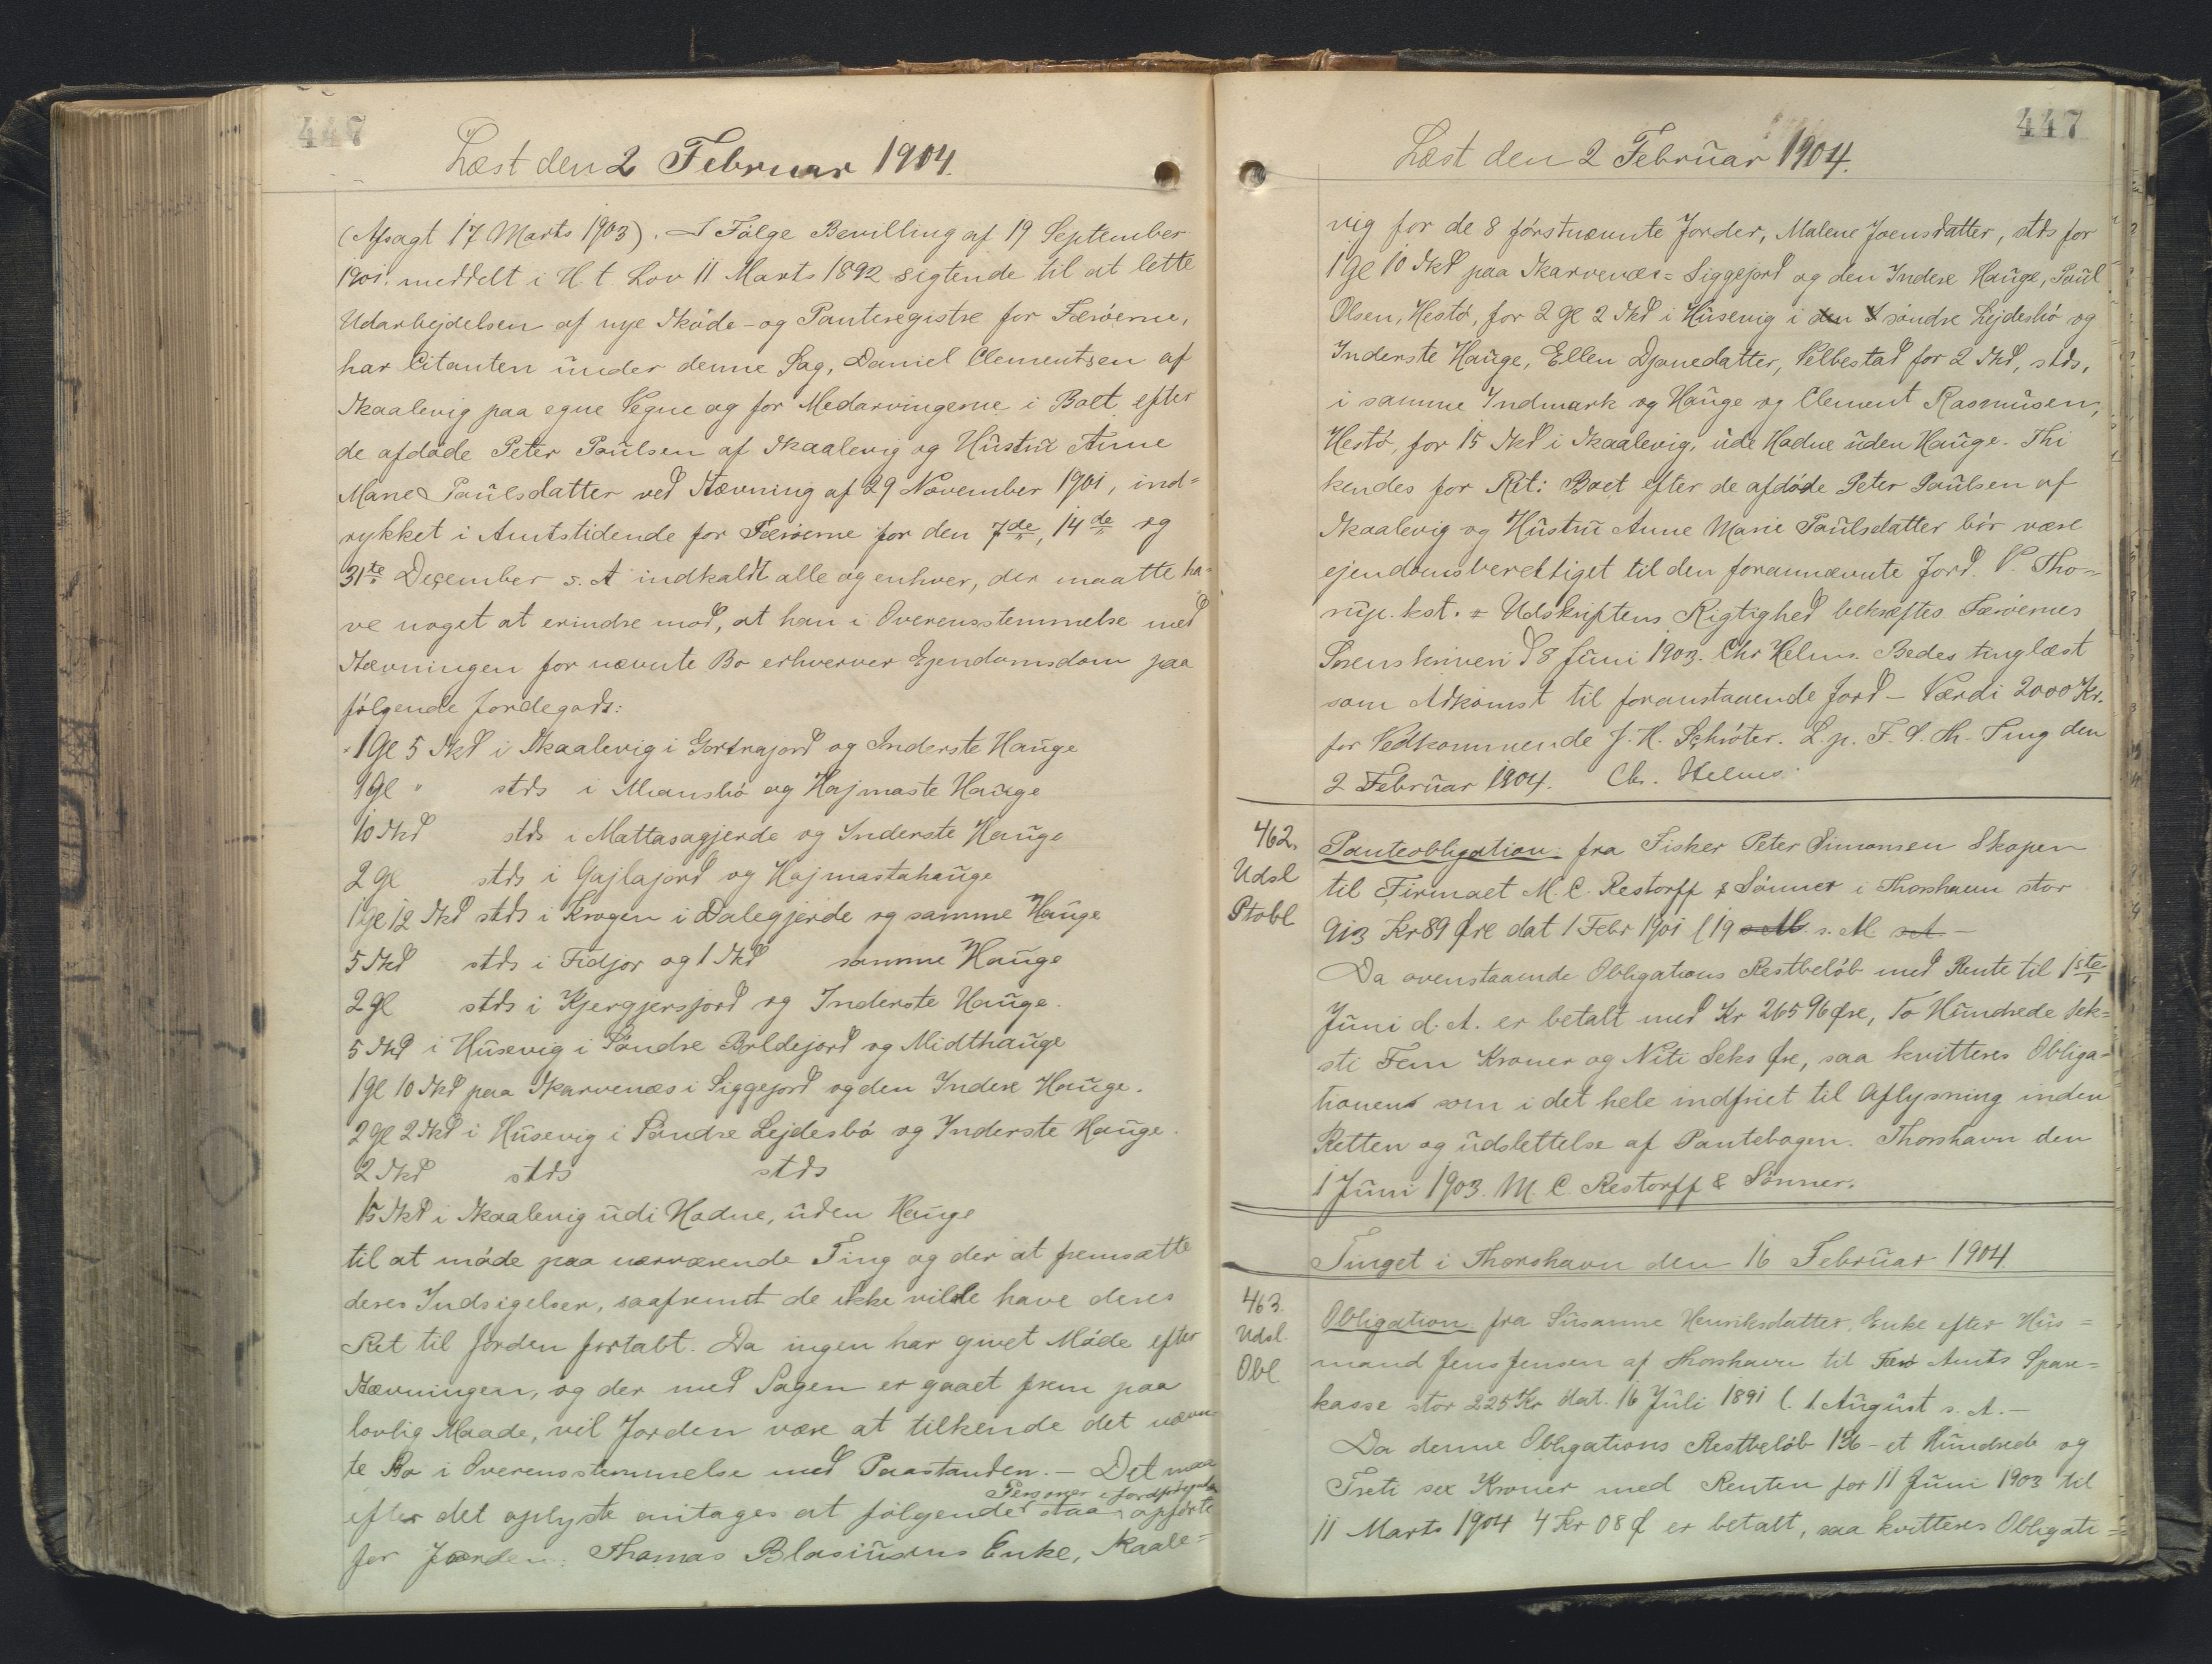 447
Læst den 2 Februar 1904.
(Afsagt 17 Marts 1903). I Følge Bevilling af 19 September
1901. meddelt i H. t Lov 11 Marts 1892 sigtende til at lette
Udarbejdelsen af nye Skøde- og Panteregistre for Færøerne,
har Citanten under denne Sag, Daniel Clementsen af
Skaalevig paa egne Vegne og for Medarvingerne i Boet efter
de afdøde Peter Poulsen af Skaalevig og Hustru Anne
Marie Paulsdatter ved Stævning af 29 November 1901, ind=
rykket i Amtstidende for Færøerne for den 7de, 14de og
31te December s. A indkaldt alle og enhver, der maatte ha=
ve noget at erindre mod, at han i Overensstemmelse med
Stævningen for nævnte Bo erhverver Ejendomsdom paa
følgende Jordegods:
1 Gl 5 Skd i Skaalevig i Gortrajord og Inderste Hauge
1 Gl " stds i Mransbø og Hajmaste Hauge
10 Skd stds i Mattasagjerde og Inderste Hauge
2 Gl stds i Gajlajord og Hajmastahauge
1 Gl 12 Skd stds i Krogen i Dalegjerde og samme Hauge
5 Skd stds i Fidjor og 1 Skd samme Hauge
2 Gl stds i Kjergjersjord og Inderste Hauge.
5 Skd i Husevig i Søndre Boldejord og Midthauge
1 Gl 10 Skd paa Skarvenæs i Siggejord og den Indere Hauge.
2 Gl 2 Skd i Husevig i Søndre Lejdesbø og Inderste Hauge.
2 Skd stds stds
15 Skd i Skaalevig udi Hadne, uden Hauge
til at møde paa nærværende Ting og der at fremsætte
deres Indsigelser, saafremt de ikke vilde have deres
Ret til Jorden fortabt. Da ingen har givet Møde efter
Stævningen, og der med Sagen er gaaet frem paa
lovlig Maade, vil Jorden være at tilkende det nævn
te Bo i Overensstemmelse med Paastanden. – Det maa
Personer i Jordprotokollen
efter det oplyste antages at følgende staa opførte
for Jorden: Thomas Blasiusens Enke, Skaale=
447
Læst den 2 Februar 1904.
vig for de 8 førstnævnte Jorder, Malene Joensdatter, stds for
1 Gl 10 Skd paa Skarvenæs= Siggejord og den Indere Hauge, Poul
Olsen, Hestø, for 2 Gl 2 Skd i Husevig i den søndre Lejdesbø og
Inderste Hauge, Ellen Djonedatter, Velbestad for 2 Skd, stds,
i samme Indmark og Hauge og Clement Rasmusen,
Hestø, for 15 Skd i Skaalevig, ude Hadne uden Hauge. Thi
kendes for Ret: Boet efter de afdøde Peter Poulsen af
Skaalevig og Hustru Anne Marie Paulsdatter bør være
ejendomsberettiget til den forannævnte Jord. V. Tho=
rup. kst. = Udskriftens Rigtighed bekræftes Færøernes
Sorenskriveri d 8 Juni 1903. Chr Helms. Bedes tinglæst
som Adkomst til foranstaaende Jord – Værdi 2000 Kr.
for Vedkommende J. H. Schrøter. L. p. F. S. Th. Ting den
2 Februar 1904. Ch. Helms.
462.
Udsl
Ptobl
Panteobligation fra Fisker Peter Simonsen Skopen
til Firmaet M. C. Restorff & Sønner i Thorshavn stor
913 Kr 89 Øre dat 1 Febr 1901 l 19 s. M s. M s A –
Da ovenstaaende Obligations Restbeløb med Rente til 1ste
Juni d. A. er betalt med Kr 265 96 Øre, To Hundrede Sek=
sti Fem Kroner og Niti Seks Øre, saa kvitteres Obliga=
tionens som i det hele indfriet til Aflysning inden
Retten og udslettelse af Pantebogen. Thorshavn den
1 Juni 1903. M. C. Restorff & Sønner.
Tinget i Thorshavn den 16 Februar 1904.
463.
Udsl.
Obl
Obligation fra Susanne Henriksdatter, Enke efter Hus=
mand Jens Jensen af Thorshavn til Færø Amts Spare=
kasse stor 225 Kr dat. 16 Juli 1891 l. 1 August s. A. –
Da denne Obligations Restbeløb 136 – et Hundrede og
Treti sex Kroner med Renten for 11 Juni 1903 til
11 Marts 1904 4 Kr 08 Ø er betalt, saa kvitteres Obligati=